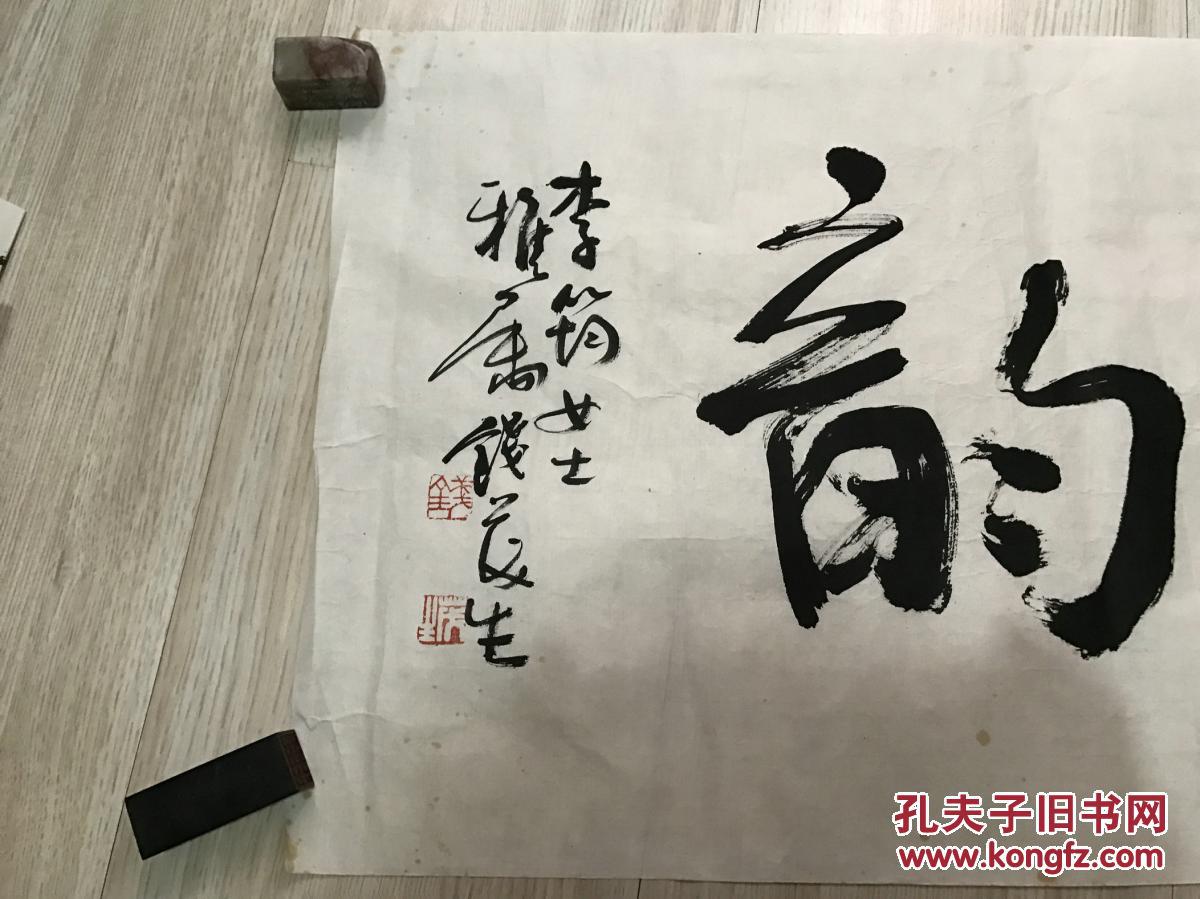 韵
李筠女士
雅属 錢茂生
錢
茂生
孔夫子旧书网
www.kongfz.com